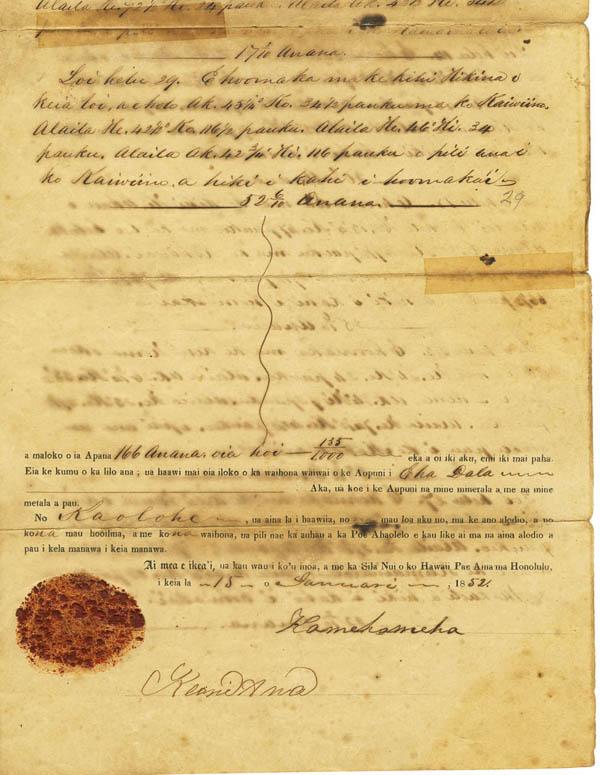 17 7/10 Anana.
Loi helu 29. E hoomaka ma ke kihi Hikina i
keia loi, a holo Ak. 45¼° Ko. 34½ pauku ma ko Kaiwiino.
Alaila He. 42½° Ko. 116½ pauku. Alaila He. 46° Hi. 34
pauku. Alaila Ak. 42¾° Hi. 116 pauku e pili ana i
ko Kaiwiino, a hiki i kahi i hoomaka'i
52 6/10 Anana. 29
a maloko o ia Apana 166 Anana. oia hoi 135/1000 eka a oi iki aku, emi iki mai paha.
Eia ke kumu o ka lilo ana ; ua haawi mai oia iloko o ka waihona waiwai o ke Aupuni i Eha Dala
Aka, ua koe i ke Aupuni na mine minerala a me na mine
metala a pau.
No Kaolohe, ua aina la i haawiia, no mau loa aku no, ma ke ano alodio, a no
kona mau hooilina, a me kona waihona, ua pili nae ka auhau a ka Poe Ahaolelo e kau like ai ma na aina alodio a
pau i kela manawa i keia manawa.
Ai mea e ikea'i, ua kau wau i ko'u inoa, a me ka Sila Nui o ko Hawaii Pae Aina ma Honolulu,
i keia la 15 o Ianuari, 1852.
Kamehameha
Keoni Ana